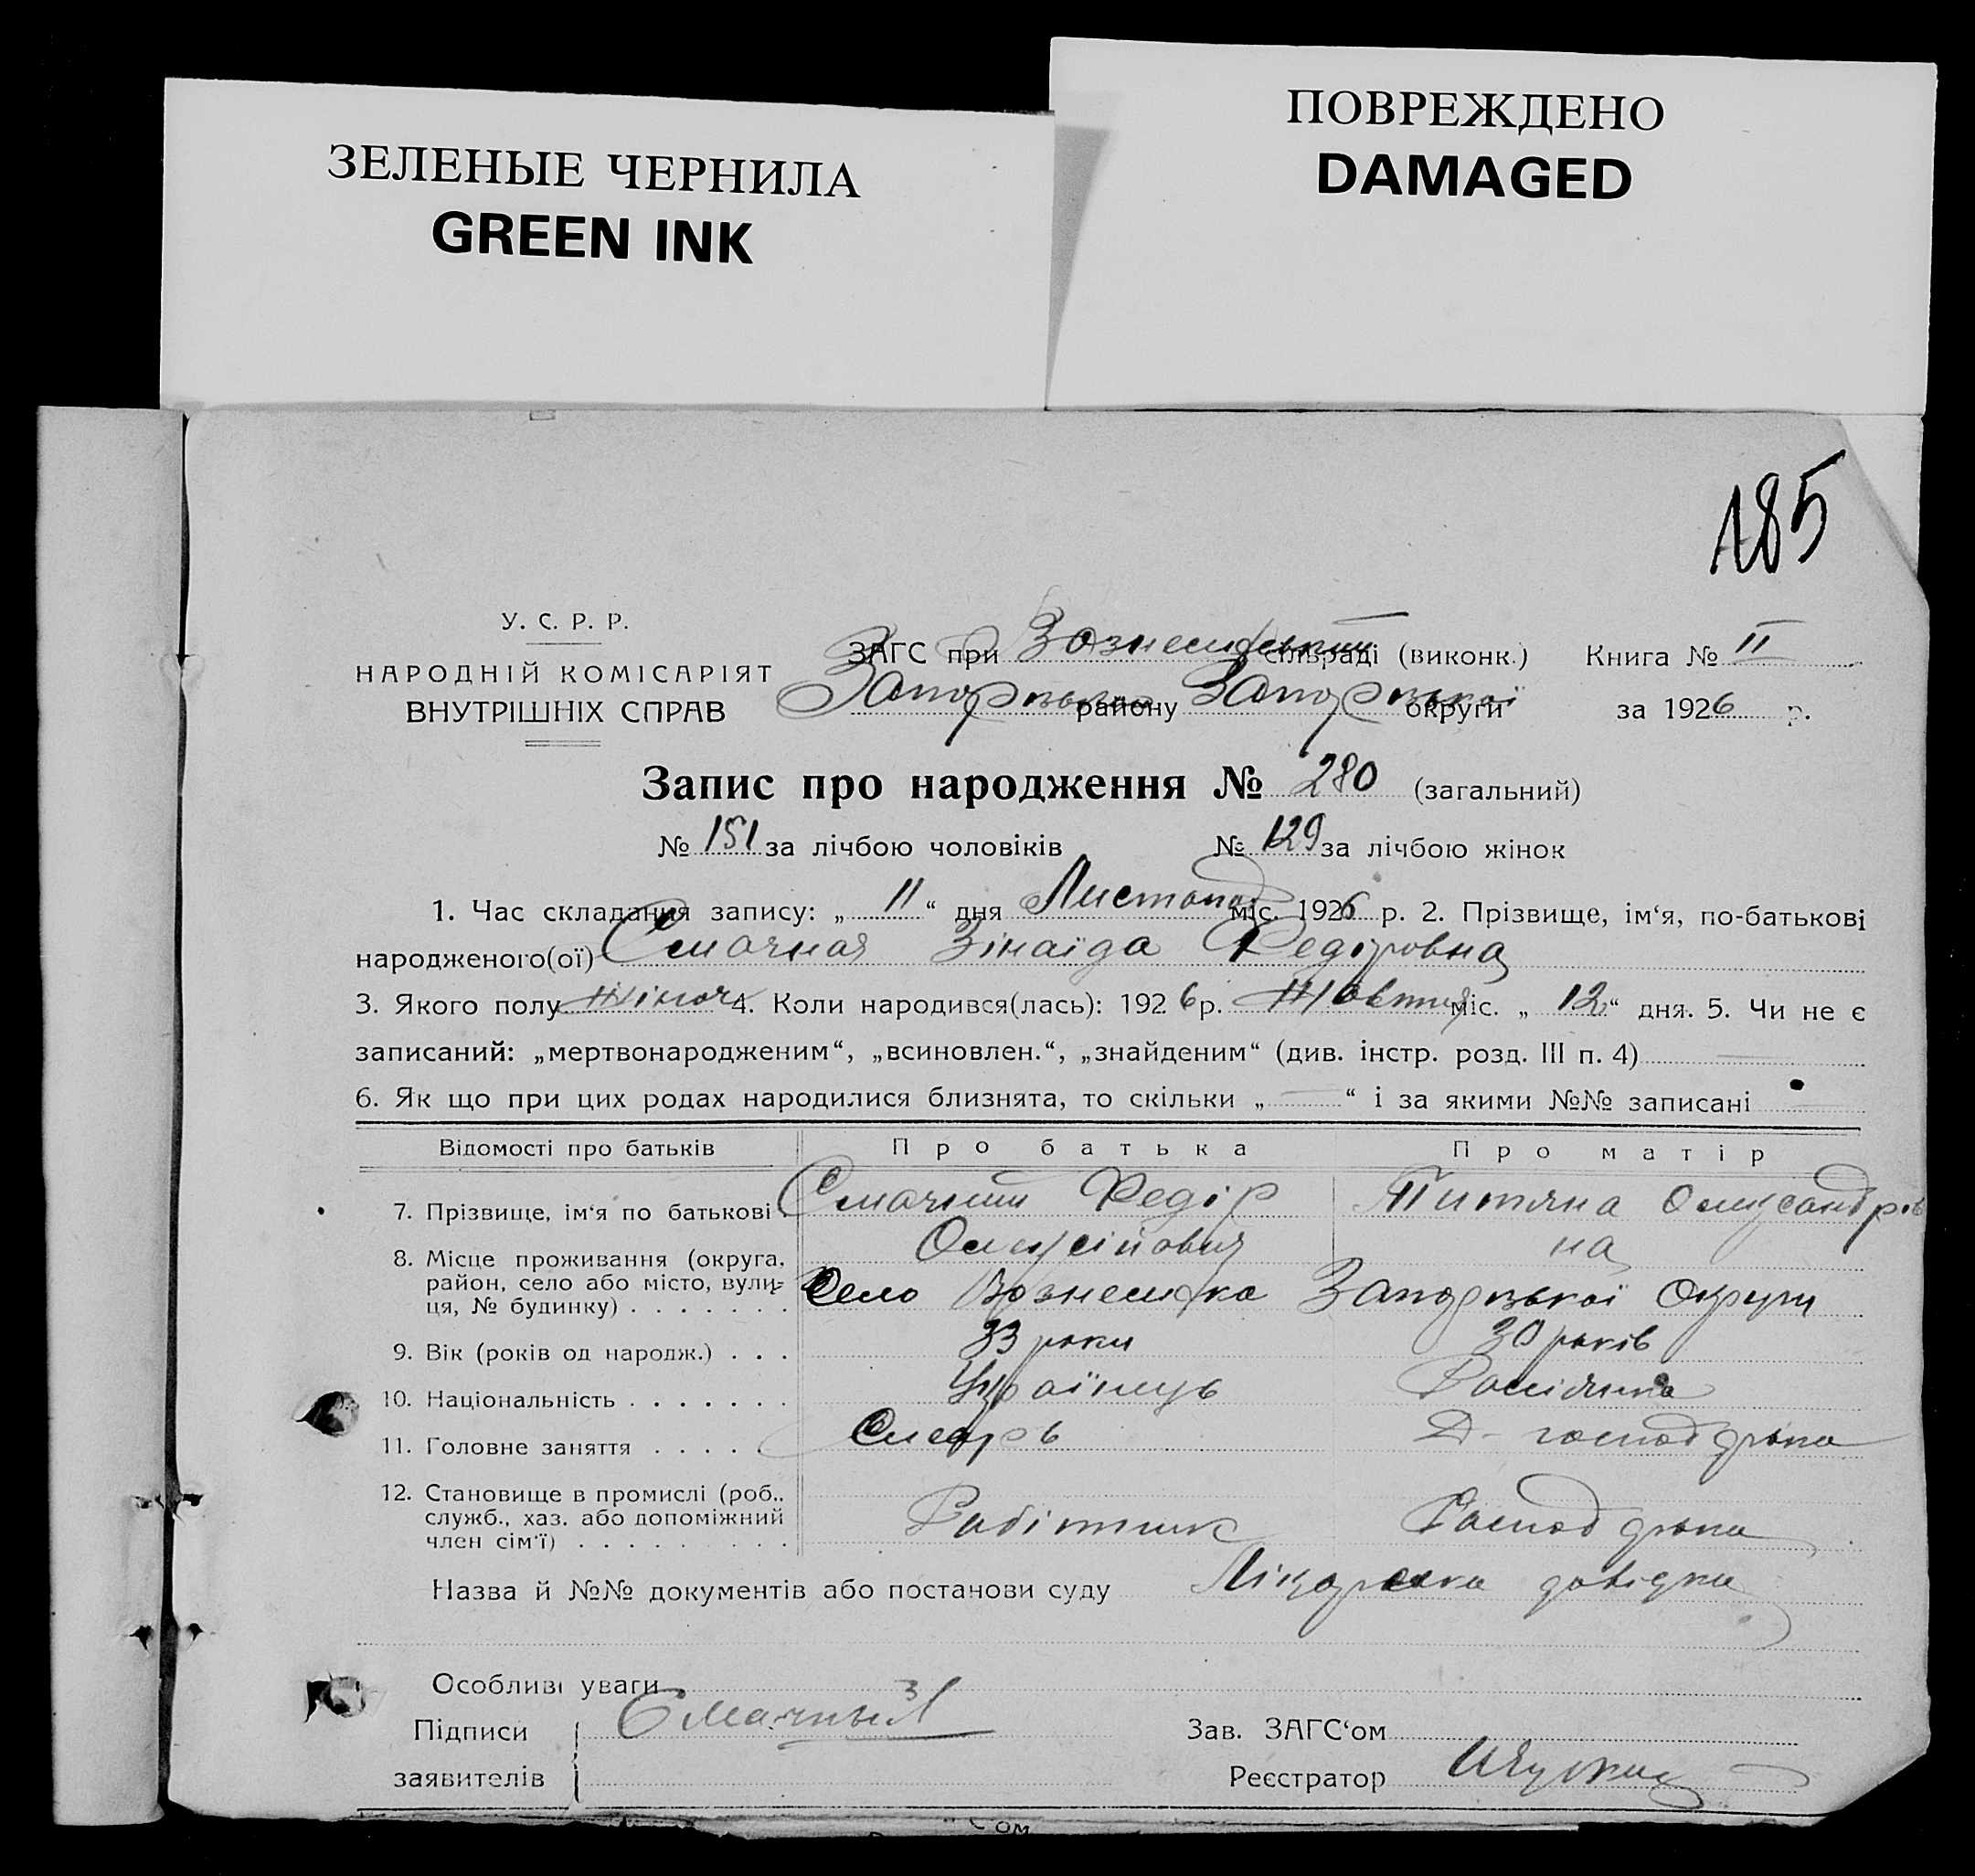 ЗЕЛЕНЫЕ ЧЕРНИЛА
GREEN INK
ПОВРЕЖДЕНО
DAMAGED
185
У. С. Р. Р.
НАРОДНІЙ КОМІСАРІЯТ
ВНУТРІШНІХ СПРАВ
ЗАГС при Вознесенський сільраді (виконк.) Книга № II
Запорізького району Запорізької округи за 1926 р.
Запис про народження № 280 (загальний)
№ 151 за лічбою чоловіків № 129 за лічбою жінок
1. Час складання запису: „ 11 “ дня Листопад міс. 1926 р. 2. Прізвище, ім‘я, по-батькові
народженого(ої) Смачная Зінаїда Федіровна
3. Якого полу жіноч 4. Коли народився(лась): 1926 р. Жовтня міс. „ 12 “ дня. 5. Чи не є
записаний: „мертвонародженим“, „всиновлен.“, „знайденим“ (див. інстр. розд. III п. 4)
6. Як що при цих родах народилися близнята, то скільки „ — “ і за якими №№ записані —
Відомості про батьків Про батька Про матір
7. Прізвище, ім‘я по батькові Смачний Федір Титяна Олександрів
Олексійович на
8. Місце проживання (округа,
район, село або місто, вули-
ця, № будинку) . . . . . . . Село Вознесенка Запорізької Округи
9. Вік (років од народж.) . . . 33 роки 30 років
10. Національність . . . . . . . Українець Росіянка
11. Головне заняття . . . . Слесарь Д- господарька
12. Становище в промислі (роб.,
служб., хаз. або допоміжний
член сім‘ї) . . . . . . . . . Робітник Господарька
Назва й №№ документів або постанови суду Лікарська довідка
Особливі уваги
Підписи Смачный Зав. ЗАГС‘ом
заявителів Реєстратор
ом